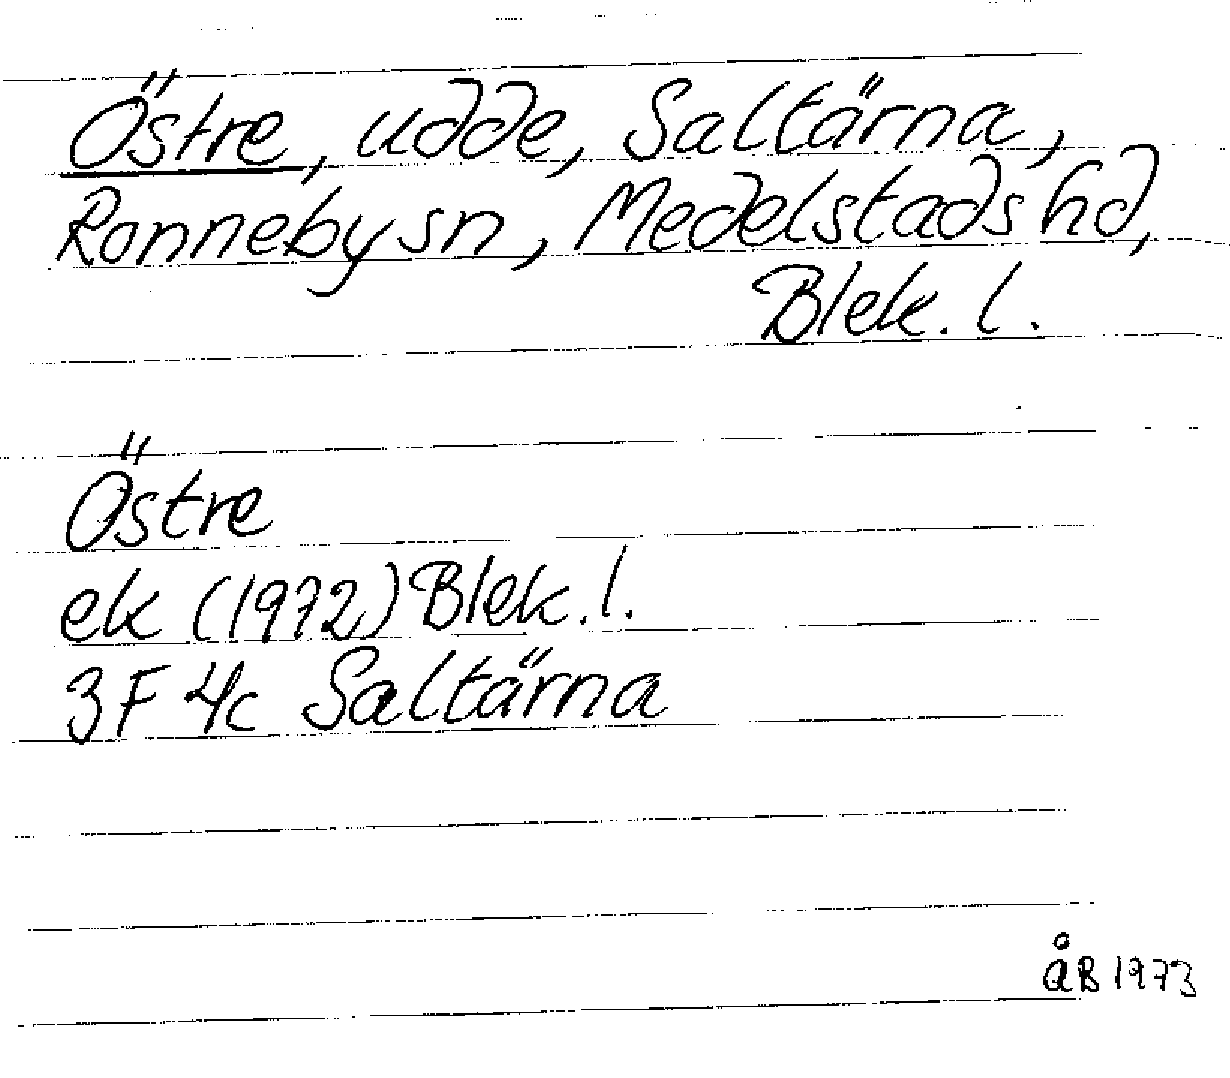 Östre, udde, Saltärna,
Ronneby sn, Medelstads hd,
Blek. l.
Östre
ek (1972) Blek. l.
3F 4c Saltärna
åB 1973